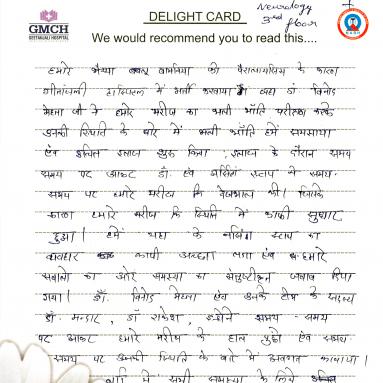 Neurology
3rd floor
GMCH
GEETANJALI HOSPITAL
DELIGHT CARD
We would recommend you to read this....
हमारे भैय्या को पैरालायसिस के कारण
गीतांजली हास्पिटल में भर्ती करवाया वहा डॉ विनोद
मेहता जी ने हमारे मरीज का भली भाँति परीक्षण करके
उनकी स्थिति के बारे में भली भाँति हमें समझाया
एंव उचित इलाज शुरू किया इलाज के दौरान समय
समय पर आकर डॉ. एंव नर्सिंग स्टाप ने समय-
समय पर हमारे मरीज कि देखभाल की। जिसके
कारण हमारे मरीज कि स्थिति में काफी सुधार
हुआ। हमें यहा के नर्सिंग स्टाप का
व्यवहार काफी अच्छा लगा एंव हमारे
सवालो का ओर समस्या का संतुष्टीजनक जवाब दिया
गया। डॉ. विनोद मेहता एंव उनके टीम के सदस्य
डॉ. डॉ राकेश, इन्होने समय समय
पर आकर हमारे मरीज के हाल पुछे एंव समय-
समय पर उनकी स्थिति के बारे में अवगत कराया।
में सभी समस्या के लिये